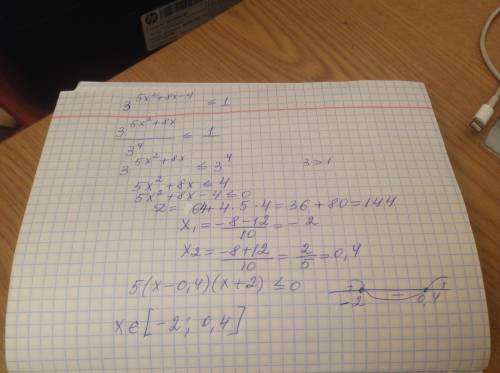 3^{5x²+8x-4} ≤ 1
3^{5x²+8x} / 3^4 ≤ 1
3^{5x²+8x} ≤ 3^4    3>1
5x²+8x ≤ 4
5x²+8x-4 ≤ 0
D= 64+4·5·4=36+80=144
x₁ = (-8-12)/10 = -2
x₂ = (-8+12)/10 = 2/5 = 0,4
5(x-0,4)(x+2) ≤ 0
-2 - 0,4
x∈[-2; 0,4]
hp